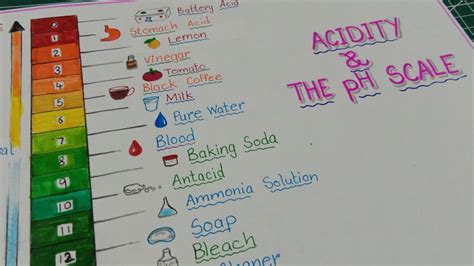 Battery Acid
0
Stomach Acid
1
Lemon
2
Vinegar
3
Tomato
4
Black Coffee
5
Milk
6
Pure Water
7
Blood
8
Baking Soda
9
Antacid
10
Ammonia Solution
11
Soap
12
Bleach
Cleaner
ACIDITY
&
THE pH SCALE